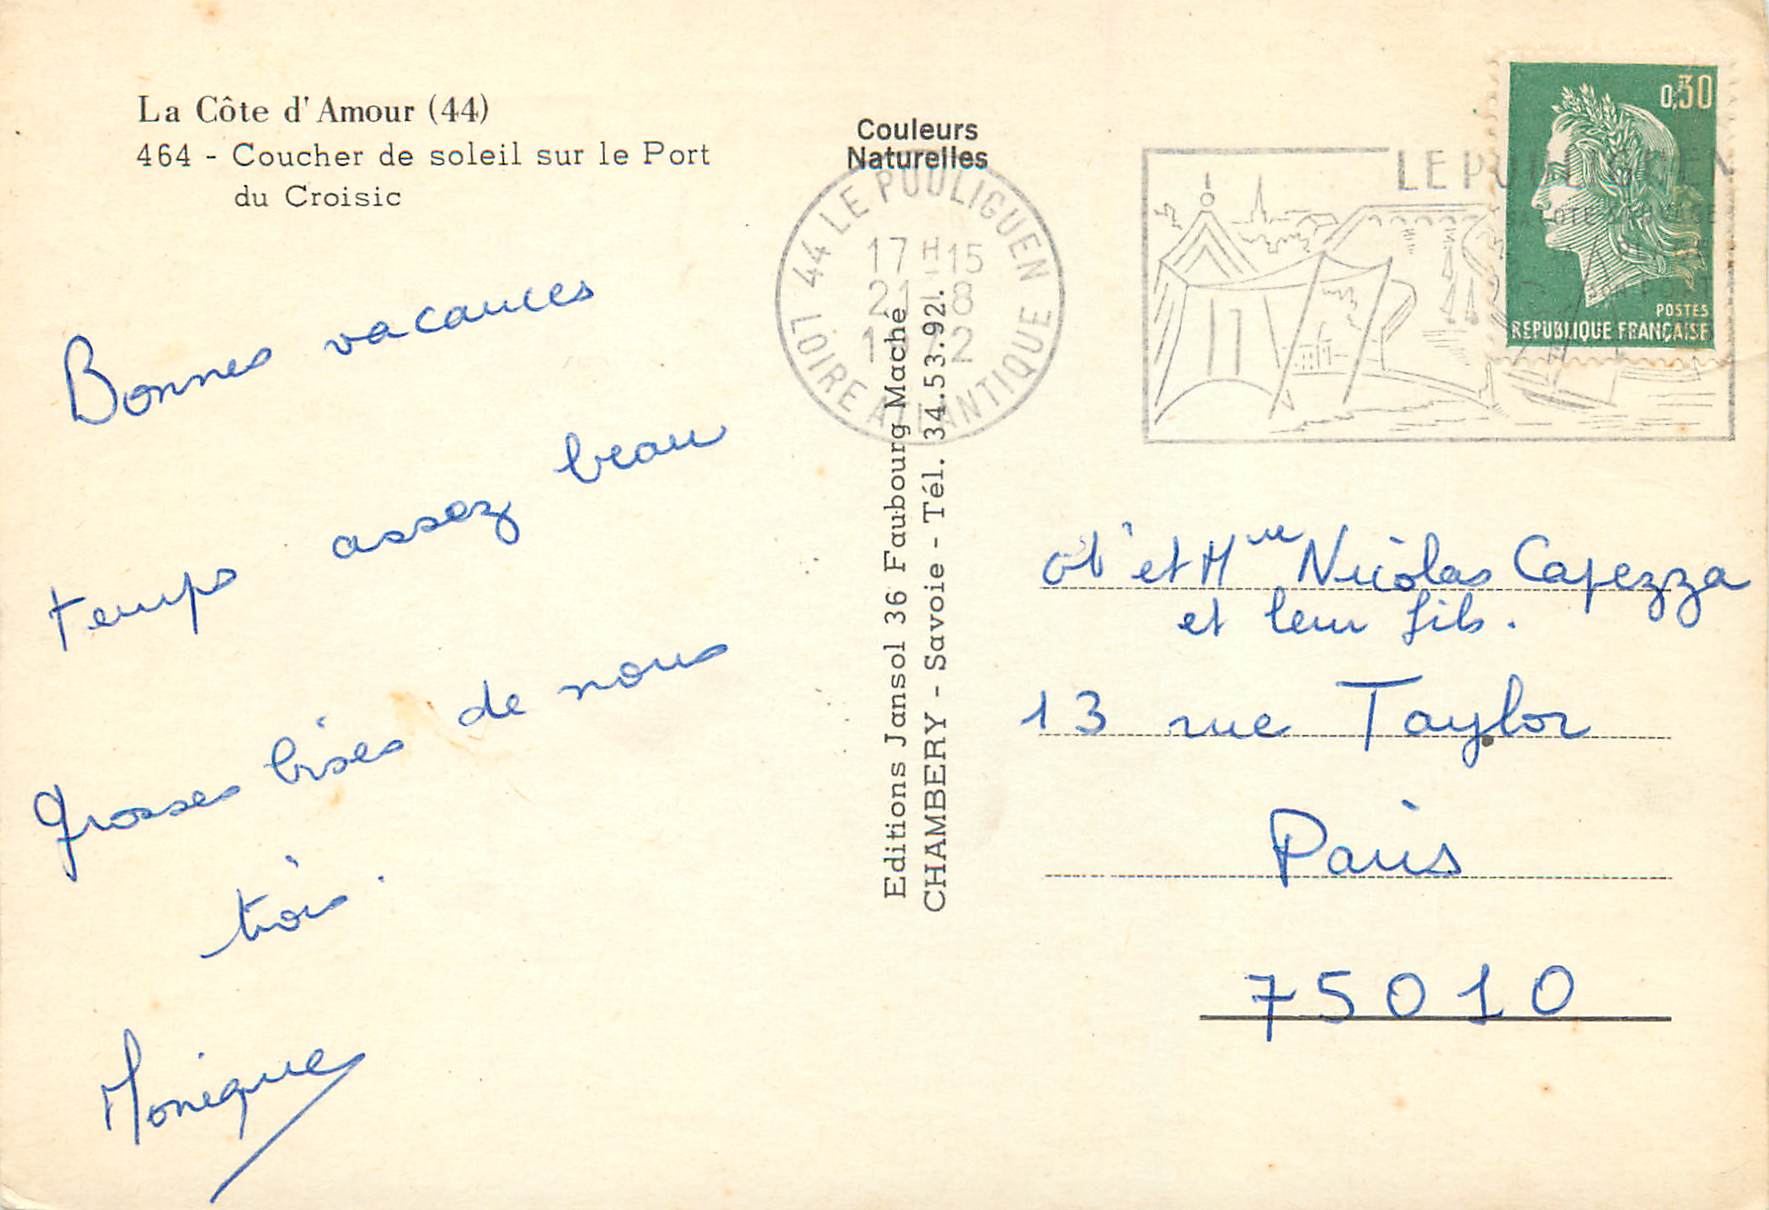 La Côte d'Amour (44)
464 - Coucher de soleil sur le Port
du Croisic
Bonnes vacances
temps assez beau
grosses bises de nous
trois.
Monique
Couleurs
Naturelles
Editions Jansol 36 Faubourg Maché
CHAMBERY - Savoie - Tél. 34.53.92
44 LE POULIGUEN
17H15
21-8
1972
LOIRE ATLANTIQUE
LE POULIGUEN
0,30
POSTES
REPUBLIQUE FRANÇAISE
Mr et Mme Nicolas Capezza
et leur fils.
13 rue Taylor
Paris
75010